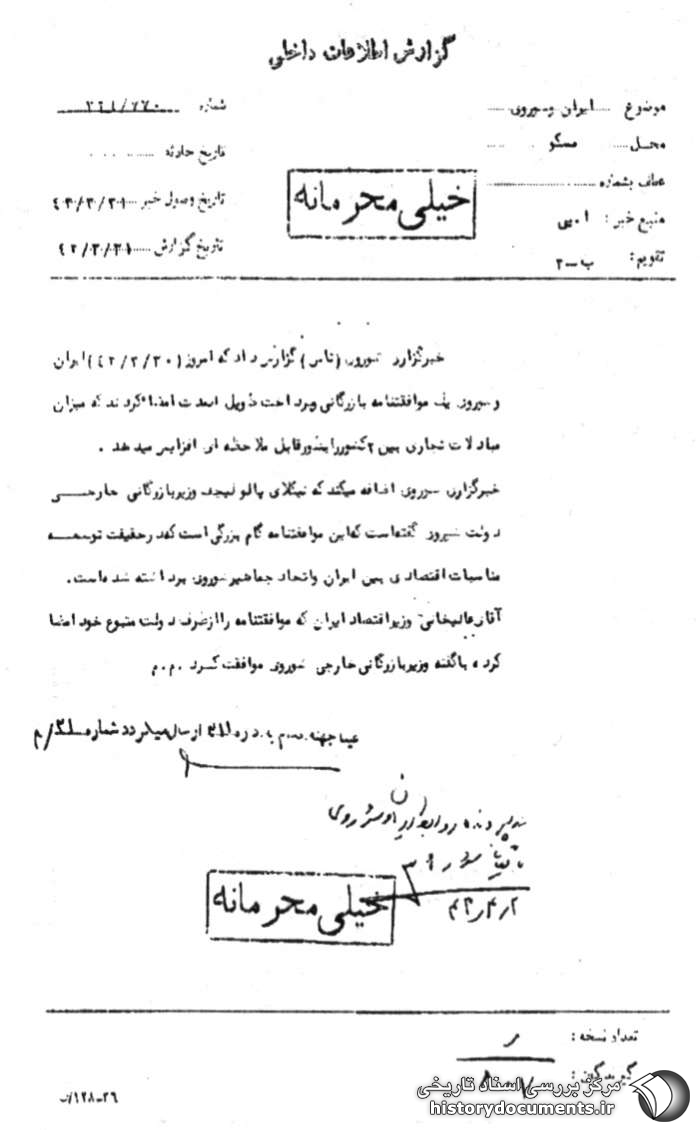 گزارش اطلاعات داخلی
موضوع ایران و شوروی
شماره ۳۴۱/۷۷۰
محل مسکو
تاریخ حادثه
عطف بشماره
تاریخ وصول خبر ۴۳/۳/۳۱
منبع خبر :
تاریخ گزارش ۴۳/۳/۳۱
تقویم : ب-۲
خیلی محرمانه
خبرگزاری شوروی (تاس) گزارش داد که امروز (۴۳/۳/۳۰) ایران
و شوروی یک موافقتنامه بازرگانی و پرداخت طویل المدت امضاء کردند که میزان
مبادلات تجاری بین ۲ کشور را بطور قابل ملاحظه ای افزایش میدهد .
خبرگزاری شوروی اضافه میکند که نیکلای پاتولیچف وزیر بازرگانی خارجی
دولت شوروی گفته است که این موافقتنامه گام بزرگی است که در حقیقت توسعه
مناسبات اقتصادی بین ایران و اتحاد جماهیر شوروی برداشته شده است .
آقای عالیخانی وزیر اقتصاد ایران که موافقتنامه را از طرف دولت متبوع خود امضا
کرده با گفته وزیر بازرگانی خارجی شوروی موافقت کرد . م.م
عینا جهته به اداره ارسال میگردد شماره
پرونده روابط ایران و شوروی
۴۳/۴/۲
خیلی محرمانه
تعداد نسخه :
گیرندگان :
۱۲۸-۲۶/ت
مرکز بررسی اسناد تاریخی
historydocuments.ir